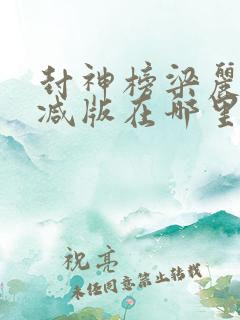 封神榜梁麗
减版在哪里
祝亮
未经同意禁止转载